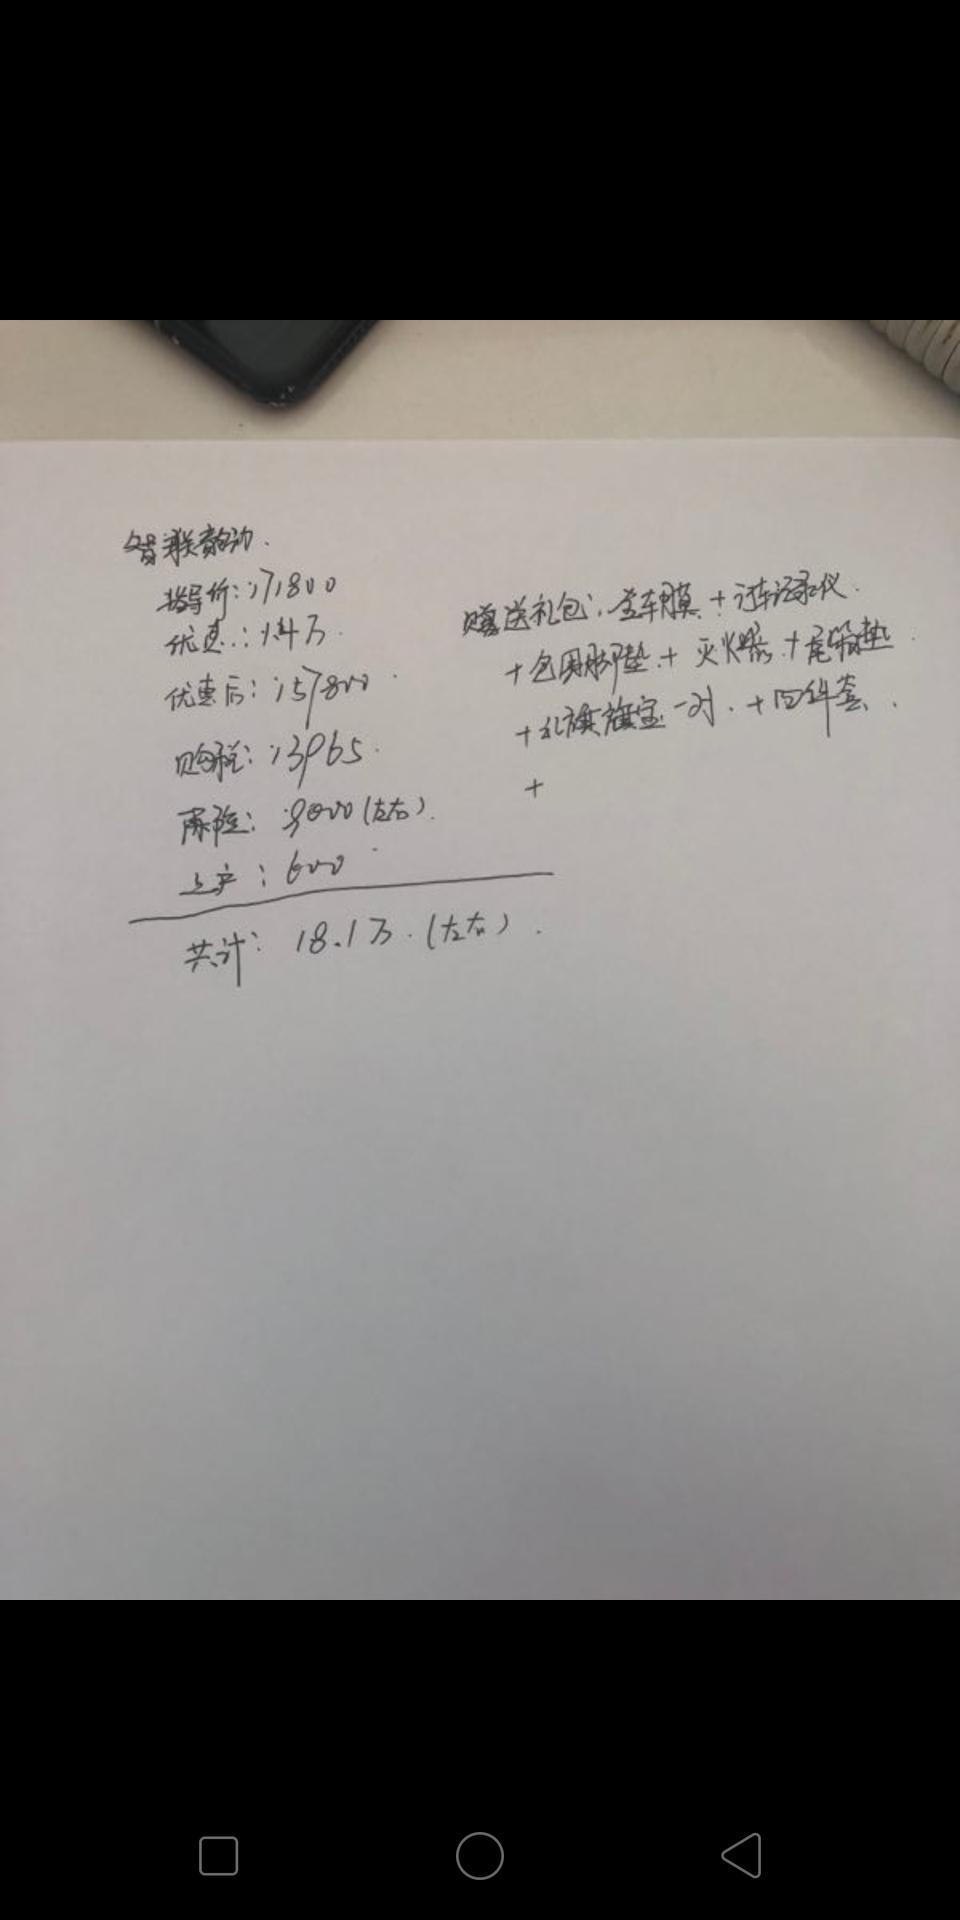 智联韵动.
指导价:171800
优惠:1.4万.
优惠后:157800.
购税:13965.
商险:9000(左右).
上户:600
共计:18.1万.(左右).
赠送礼包:全车膜+行车记录仪.
+包围脚垫+灭火器+尾箱垫.
+红旗旗宝一对.+四件套.
+